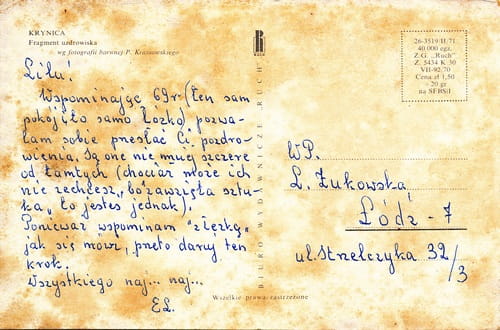 KRYNICA
Fragment uzdrowiska
wg fotografii barwnej P. Krassowskiego
Lilu!
Wspominając 69r. (ten sam
pokój i to samo łóżko) pozwa-
lam sobie przesłać Ci pozdro-
wienia. Są one nie mniej szczere
od tamtych (chociaż może ich
nie zechcesz, sztu-
ka", to jesteś jednak).
Ponieważ wspominam "z łezką"
jak się mówi, przeto daruj ten
krok.
Wszystkiego naj... naj...
EL.
BIURO WYDAWNICZE "RUCH"
26-3519/II/71
40 000 egz.
Z.G. „Ruch"
Z. 5434 K 30
VII-92/70
Cena zł 1,50
+ 20 gr
na SFBSiI
WP.
L. Żukowska
Łódź - 7
ul. Strzelczyka 32/3
Wszelkie prawa zastrzeżone